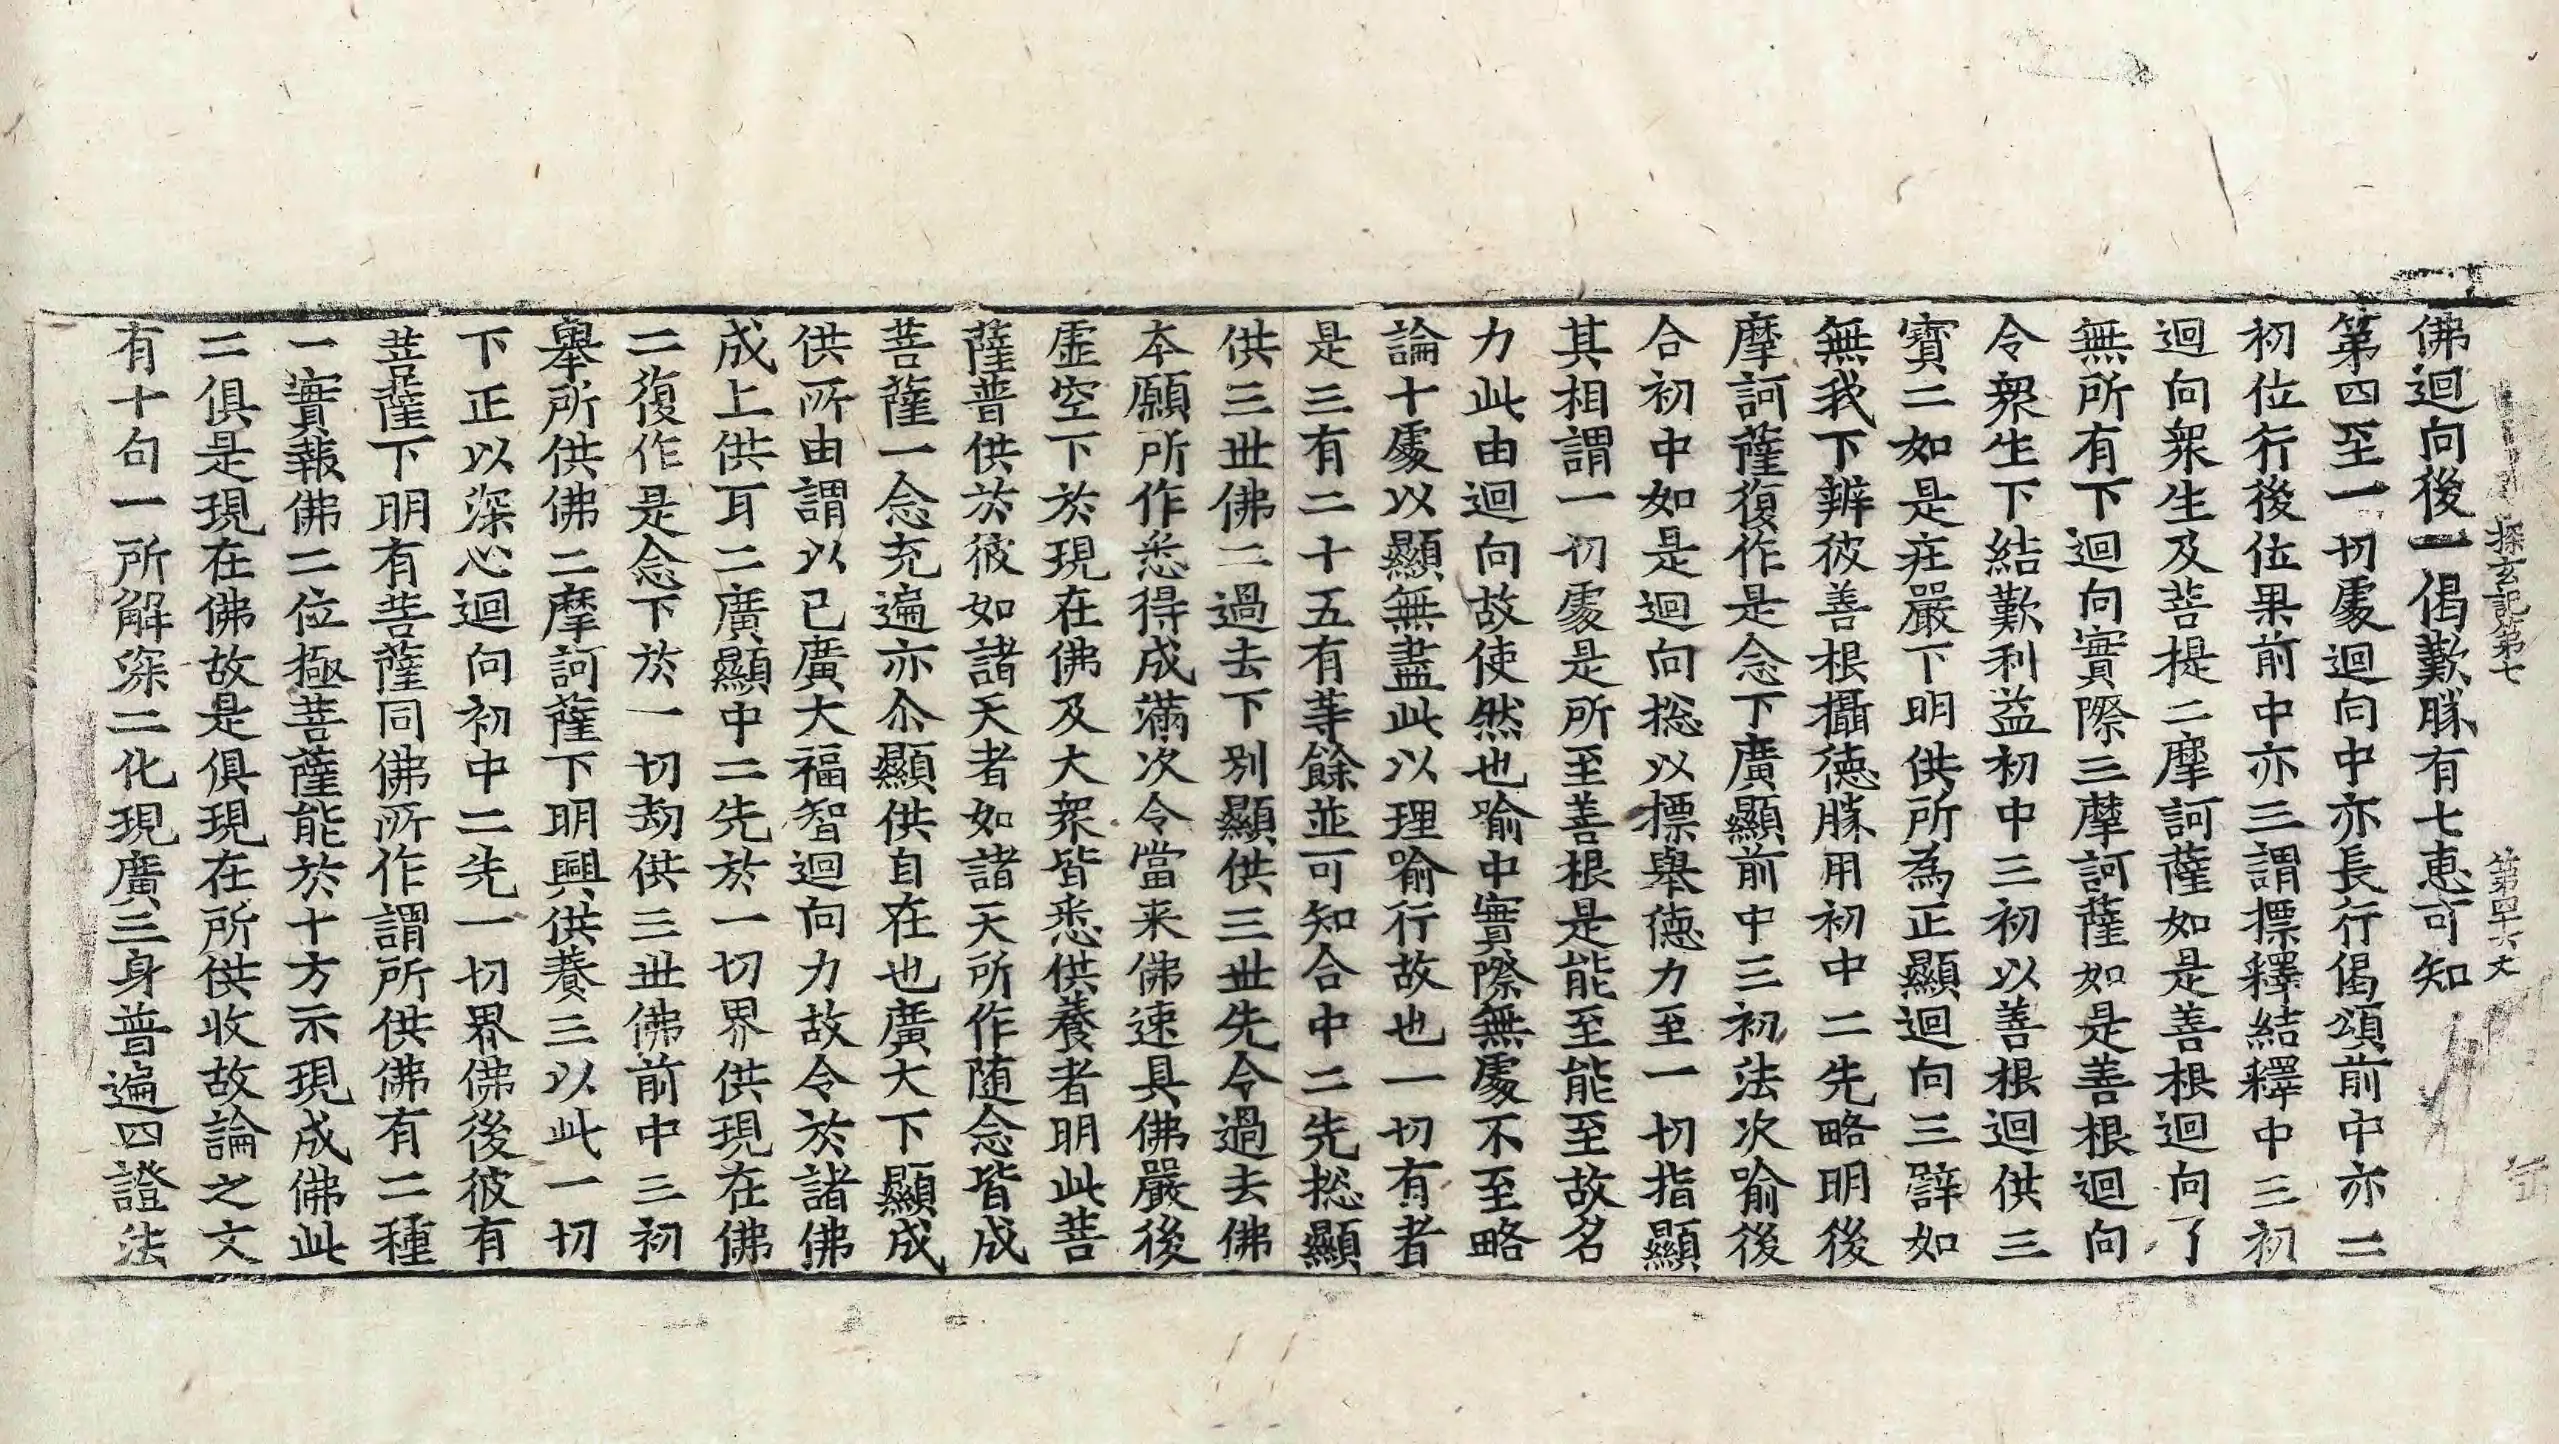 探玄記第七 第四十六丈 缶
佛迴向後一偈歎勝有七恵可知
第四至一切處迴向中亦長行偈頌前中亦二
初位行後位果前中亦三謂標釋結釋中三初
迴向衆生及菩提二摩訶薩如是善根迴向了
無所有下迴向實際三摩訶薩如是善根迴向
令衆生下結歎利益初中三初以善根迴供三
寶二如是莊嚴下明供所為正顯迴向三辟如
無我下辨彼善根攝徳勝用初中二先略明後
摩訶薩復作是念下廣顯前中三初法次喻後
合初中如是迴向捴以標舉德力至一切指顯
其相謂一切處是所至善根是能至能至故名
力此由迴向故使然也喻中實際無處不至略
論十處以顯無盡此以理喻行故也一切有者
是三有二十五有等餘並可知合中二先捴顯
供三世佛二過去下別顯供三世先令過去佛
本願所作悉得成滿次令當来佛速具佛嚴後
虛空下於現在佛及大衆皆悉供養者明此菩
薩普供於彼如諸天者如諸天所作随念皆成
菩薩一念充遍亦尒顯供自在也廣大下顯成
供所由謂以已廣大福智迴向力故令於諸佛
成上供耳二廣顯中二先於一切界供現在佛
二復作是念下於一切劫供三世佛前中三初
舉所供佛二摩訶薩下明興供養三以此一切
下正以深心迴向初中二先一切界佛後彼有
菩薩下明有菩薩同佛所作謂所供佛有二種
一實報佛二位極菩薩能於十方示現成佛此
二俱是現在佛故是俱現在所供收故論之文
有十句一所解深二化現廣三身普遍四證法